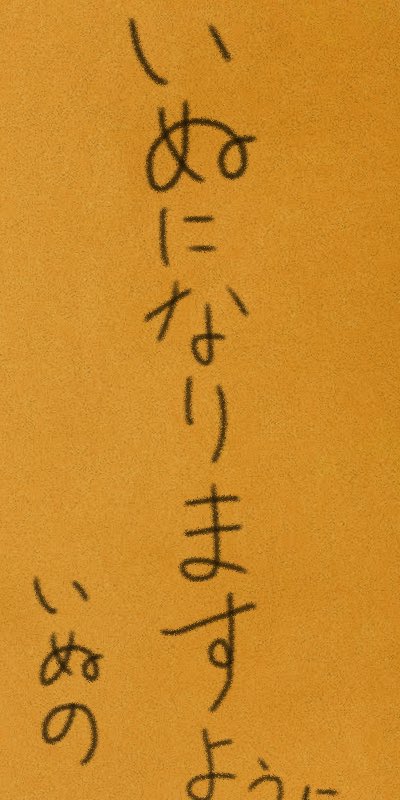 いぬになりますように
いぬの